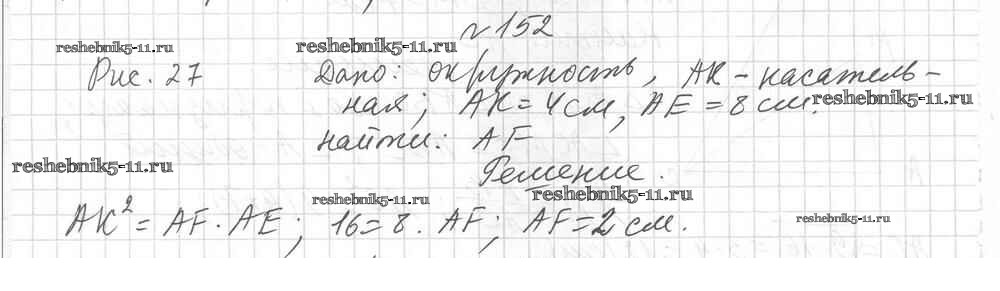 №152
reshebnik5-11.ru reshebnik5-11.ru
Рис. 27 Дано: окружность, АК - касатель-
ная; АК = 4 см, АЕ = 8 см. reshebnik5-11.ru
найти: AF
reshebnik5-11.ru Решение.
reshebnik5-11.ru reshebnik5-11.ru
АК² = AF · AE; 16 = 8 · AF; AF = 2 см. reshebnik5-11.ru